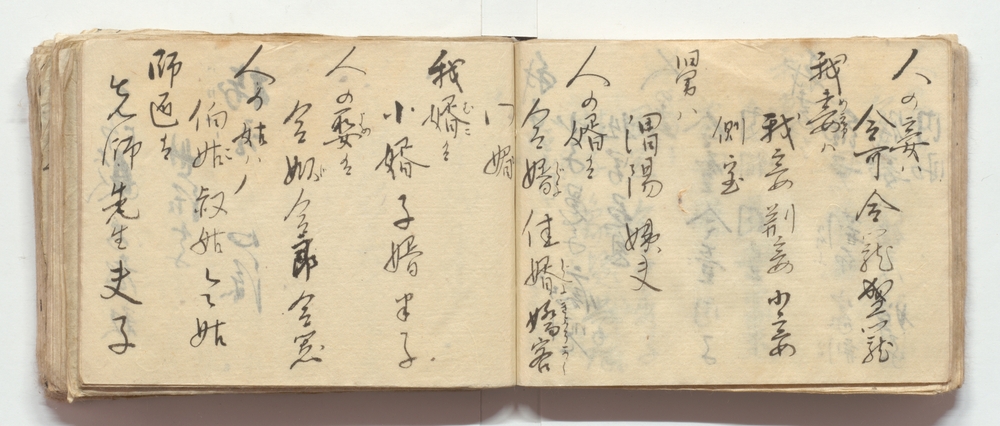 人の妾ハ
令可令寵賢寵
我妾ハ
我妾荊妾小妾
側室
舅ハ
陽 姨夫
人の婿ハ
令婿佳婿嬌客
婿
我婿ハ
小婿子婿半子
人の娶ハ
令郎令
人の姑ハ
伯姑叔姑令姑
師匠ハ
先師先生夫子